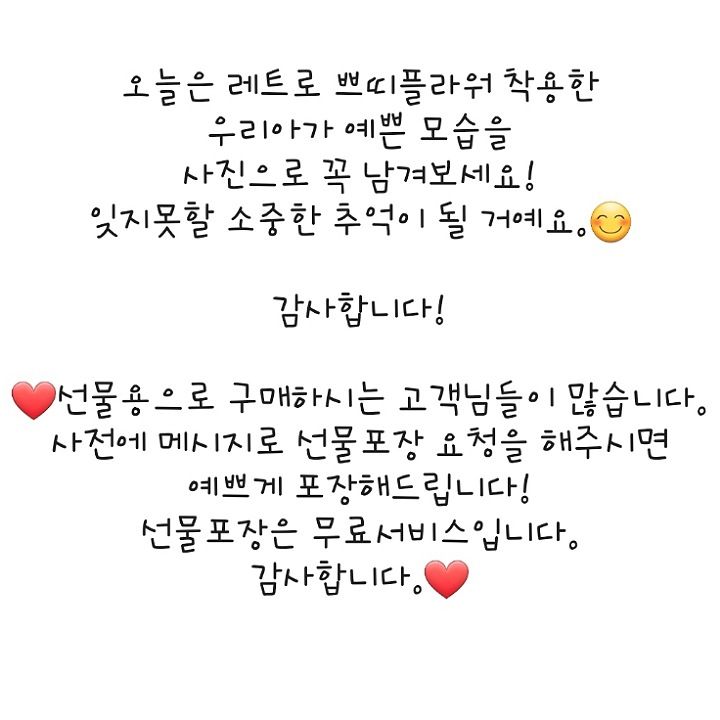 오늘은 레트로 쁘띠플라워 착용한
우리아가 예쁜 모습을
사진으로 꼭 남겨보세요!
잊지못할 소중한 추억이 될 거예요.😊
감사합니다!
❤️선물용으로 구매하시는 고객님들이 많습니다.
사전에 메시지로 선물포장 요청을 해주시면
예쁘게 포장해드립니다!
선물포장은 무료서비스입니다.
감사합니다.❤️